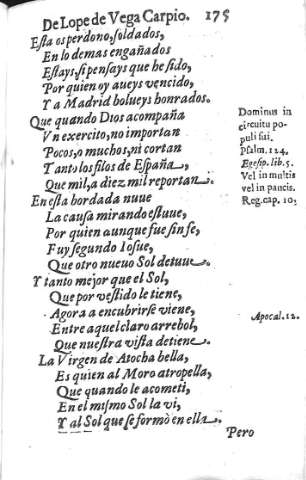 De Lope de Vega Carpio. 175
Esta os perdono, soldados,
En lo demas engañados
Estays, si pensays que he sido,
Por quien oy aueys vencido,
Y a Madrid bolueys honrados.
Que quando Dios acompaña
Vn exercito, no importan
Pocos, o muchos, ni cortan
Tanto los filos de España,
Que mil, a diez mil reportan.
En esta bordada nuue
La causa mirando estuue,
Por quien aunque fuy sin se,
Fuy segundo Iosue,
Que otro nueuo Sol detuue.
Y tanto mejor que el Sol,
Que por vestido le tiene,
Agora a encubrirse viene,
Entre aquel claro arrebol,
Que nuestra vista detiene.
La Virgen de Atocha bella,
Es quien al Moro atropella,
Que quando le acometi,
En el mismo Sol la vi,
Y al Sol que se formò en ella.
Pero
Dominus in
circuitu po-
puli sui.
Psalm. 124.
Egesip. lib. 5.
Vel in multis
vel in paucis.
Reg. cap. 10.
Apocal. 12.